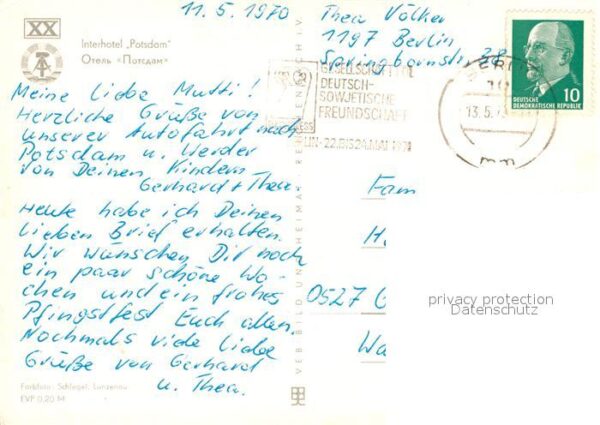 11.5.1970
XX
Interhotel „Potsdam"
Отель «Потсдам»
Meine liebe Mutti!
Herzliche Grüße von
unserer Autofahrt nach
Potsdam u. Werder
von Deinen Kindern
Gerhard + Thea.
Heute habe ich Deinen
lieben Brief erhalten.
Wir wünschen Dir noch
ein paar schöne Wo-
chen und ein frohes
Pfingstfest Euch allen.
Nochmals viele liebe
Grüße von Gerhard
u. Thea.
Farbfoto: Schlegel, Lunzenau
EVP 0,20 M
VEB BILD UND HEIMAT REICHENBACH I. V.
Thea Völker
1197 Berlin
Springbornstr. 28
GESELLSCHAFT
DEUTSCH-
SOWJETISCHE
FREUNDSCHAFT
22. BIS 24. MAI
BERLIN
13.5.
10
DEUTSCHE
DEMOKRATISCHE REPUBLIK
Fam
H.
0527 G
Wa
privacy protection
Datenschutz